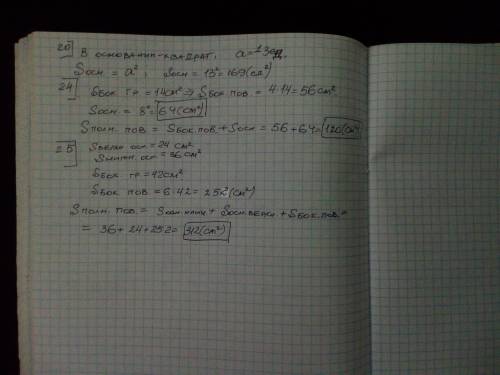 20] В основании-квадрат, a=13ед.
Sосн = a²; Sосн = 13² = 169(ед²)
24] Sбок. гр = 14см² ⇒ Sбок пов. = 4·14 = 56см².
Sосн. = 8² = 64(см²)
Sполн. пов. = Sбок.пов. + Sосн = 56+64 = 120(см²)
25] Sверхн осн. = 24 см²
Sнижн. осн = 36см²
Sбок. гр = 42см²
Sбок пов. = 6·42 = 252(см²)
Sполн. пов. = Sосн.нижн + Sосн.верхн. + Sбок.пов. =
= 36+24+252 = 312(см²)